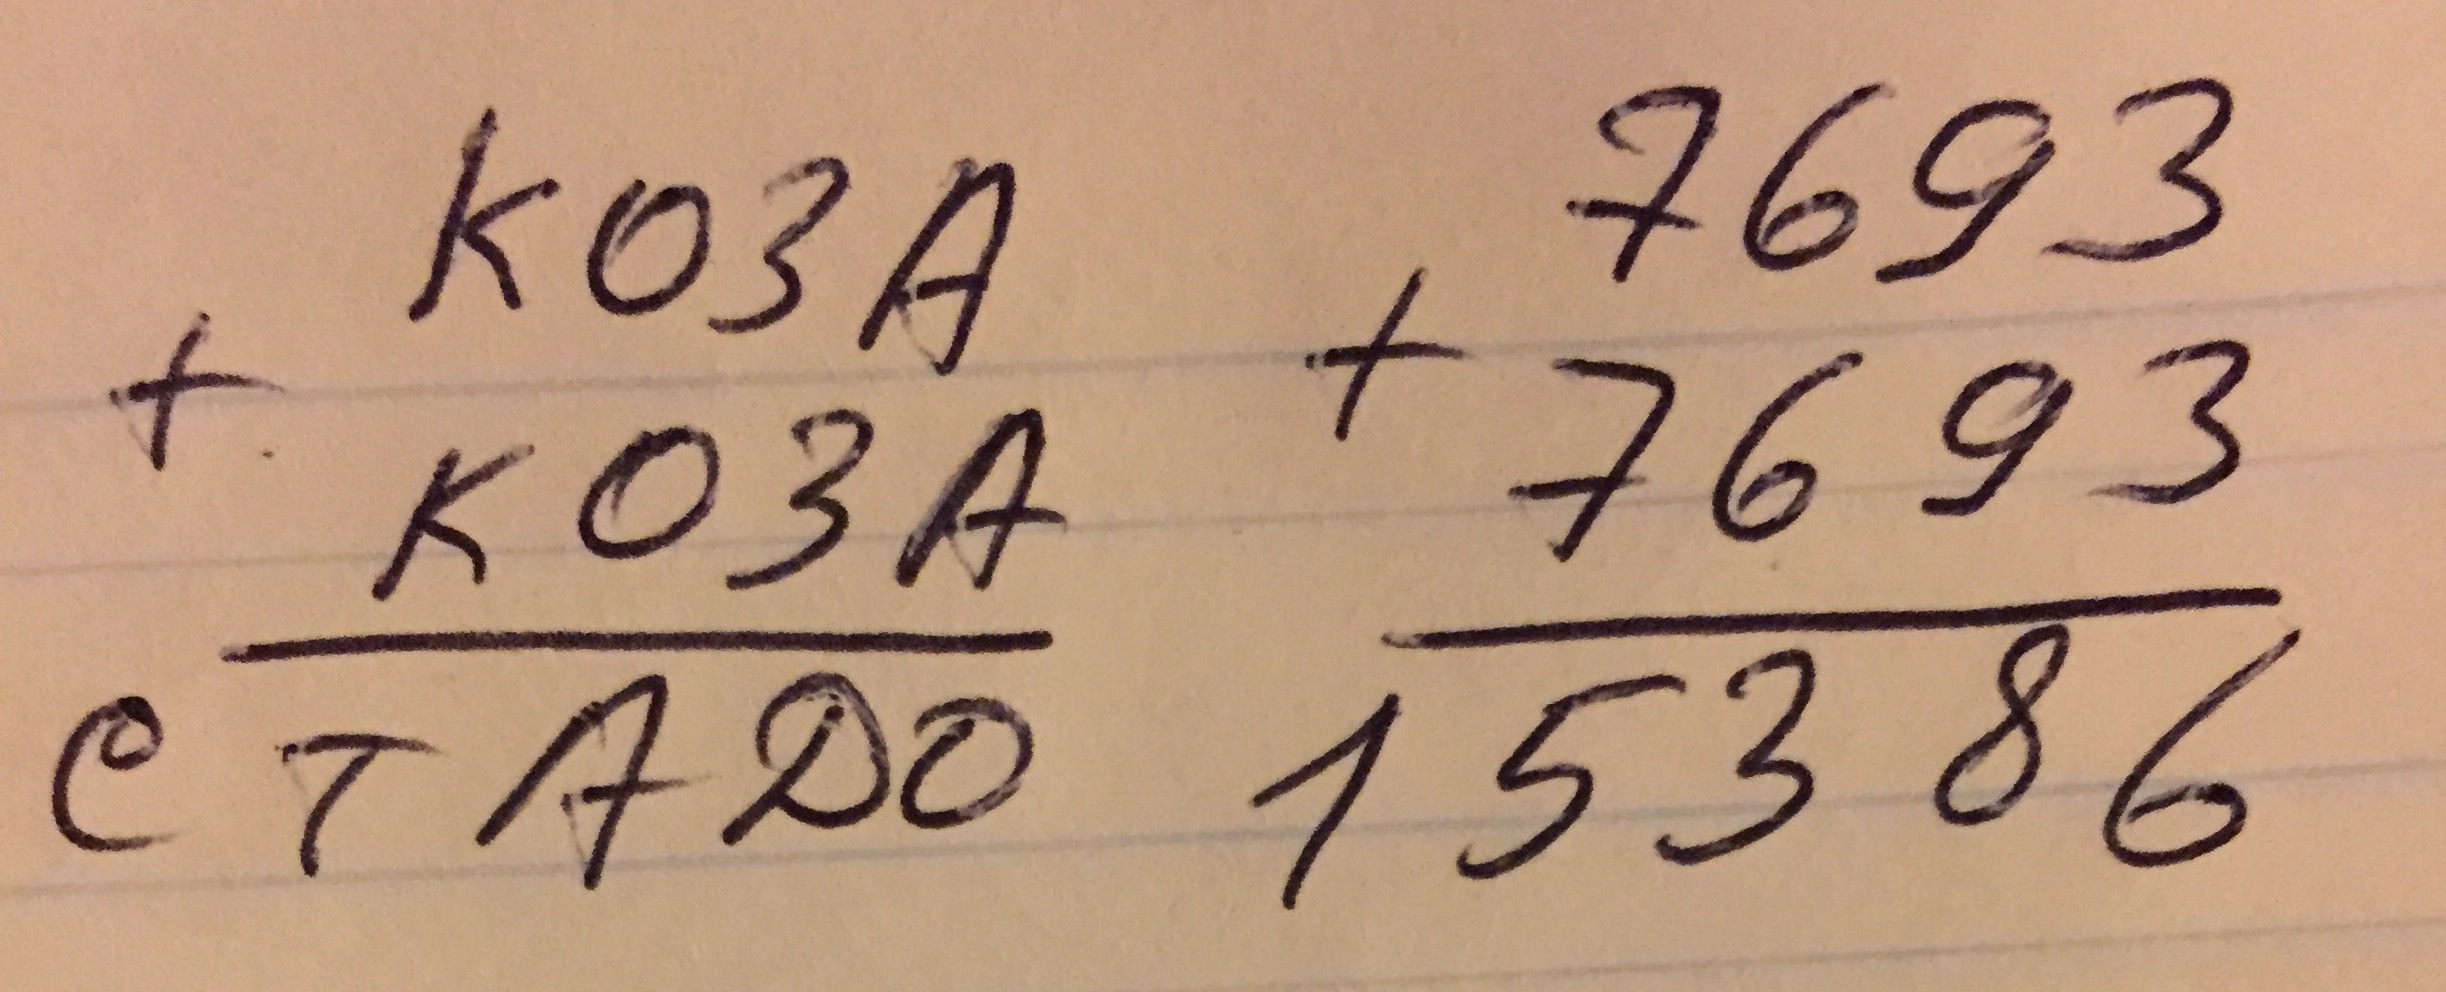 КОЗА 7693
+ +
КОЗА 7693
СТАДО 15386